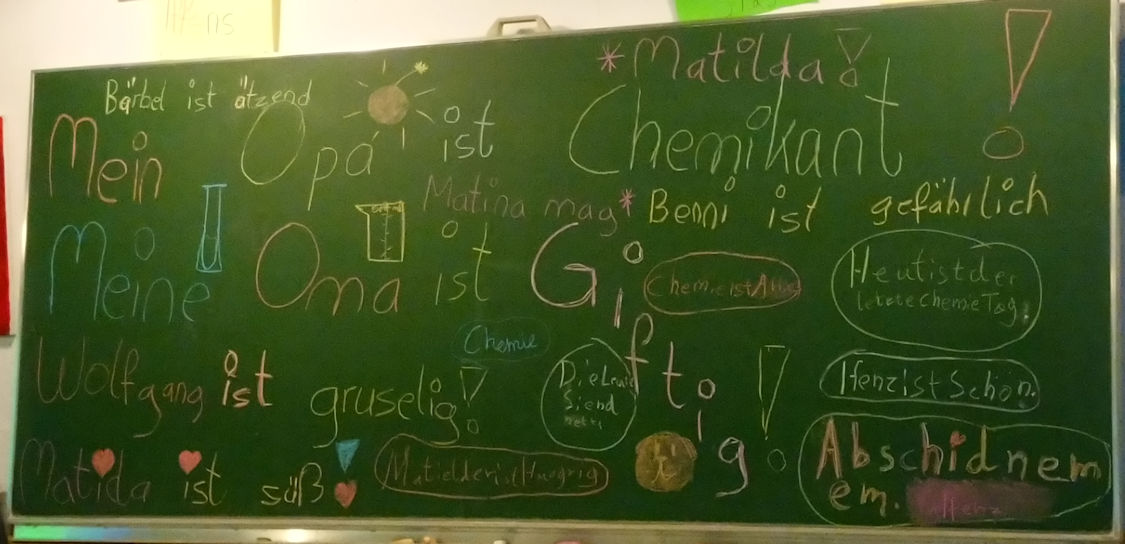 *Matilda!
Bärbel ist ätzend
Mein Opa ist Chemikant!
Matina mag* Benni ist gefährlich
Meine Oma ist Giftig!
Chemie ist
Heut ist der
letzte Chemie Tag.
Chemie
Wolfgang ist gruselig!
Die
Siend
nett
Henz ist Schön.
Matida ist süß!
Abschid nem
em.